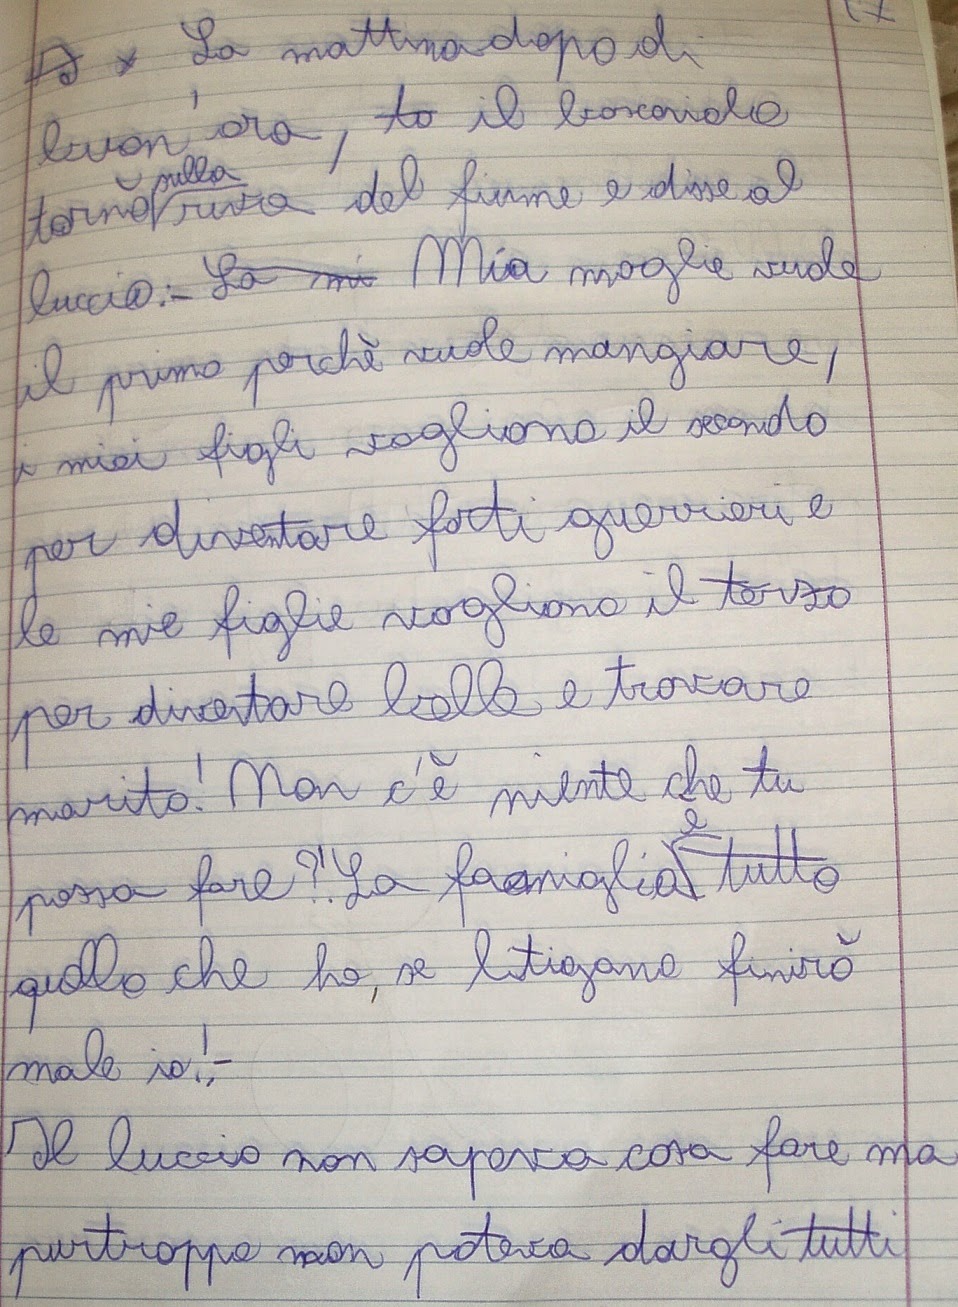 La mattina dopo di
buon'ora, to il boscaiolo
tornò sulla riva del fiume e disse al
luccio:- La mi Mia moglie vuole
il primo perchè vuole mangiare,
i miei figli vogliono il secondo
per diventare forti guerrieri e
le mie figlie vogliono il terzo
per diventare belle e trovare
marito! Non c'è niente che tu
possa fare?! La famiglia è tutto
quello che ho, se litigano finirò
male io!,-
Il luccio non sapeva cosa fare ma
purtroppo non poteva dargli tutti